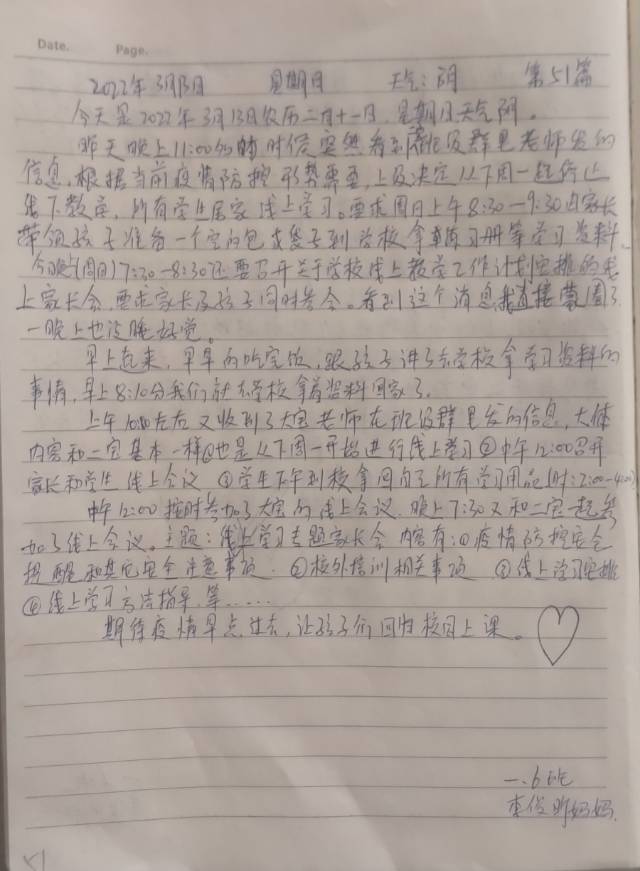 Date.     Page.
2022年3月13日     星期日     天气:阴     第51篇
今天是2022年3月13日农历二月十一日,星期日天气阴。
昨天晚上11:00的时候突然看到班级群里老师发的
信息,根据当前疫情防控形势严重,上级决定从下周一起停止
线下教学,所有学生居家线上学习。要求周日上午8:30—9:30由家长
带领孩子准备一个空的包或袋子到学校拿练习册等学习资料
今晚(周日)7:30-8:30还要召开关于学校线上教学工作计划安排的线
上家长会,要求家长及孩子同时参会。看到这个消息我直接蒙圈了
一晚上也没睡好觉。
早上起来,早早的吃完饭,跟孩子讲了去学校拿学习资料的
事情,早上8:10分我们就去学校拿着资料回家了。
上午10:00左右又收到了大宝老师在班级群里发的信息,大体
内容和二宝基本一样①也是从下周一开始进行线上学习②中午12:00召开
家长和学生线上会议 ③学生下午到校拿回自己所有学习用品(时:2:00-4:00)
中午12:00按时参加了大宝的线上会议,晚上7:30又和二宝一起参
加了线上会议。主题:线上学习专题家长会 内容有:①疫情防控安全
提醒和其它安全注意事项 ②校外培训相关事项 ③线上学习安排
④线上学习方法指导,等……
期待疫情早点过去,让孩子们回归校园上课。
一.6班
李俊昕妈妈.
51